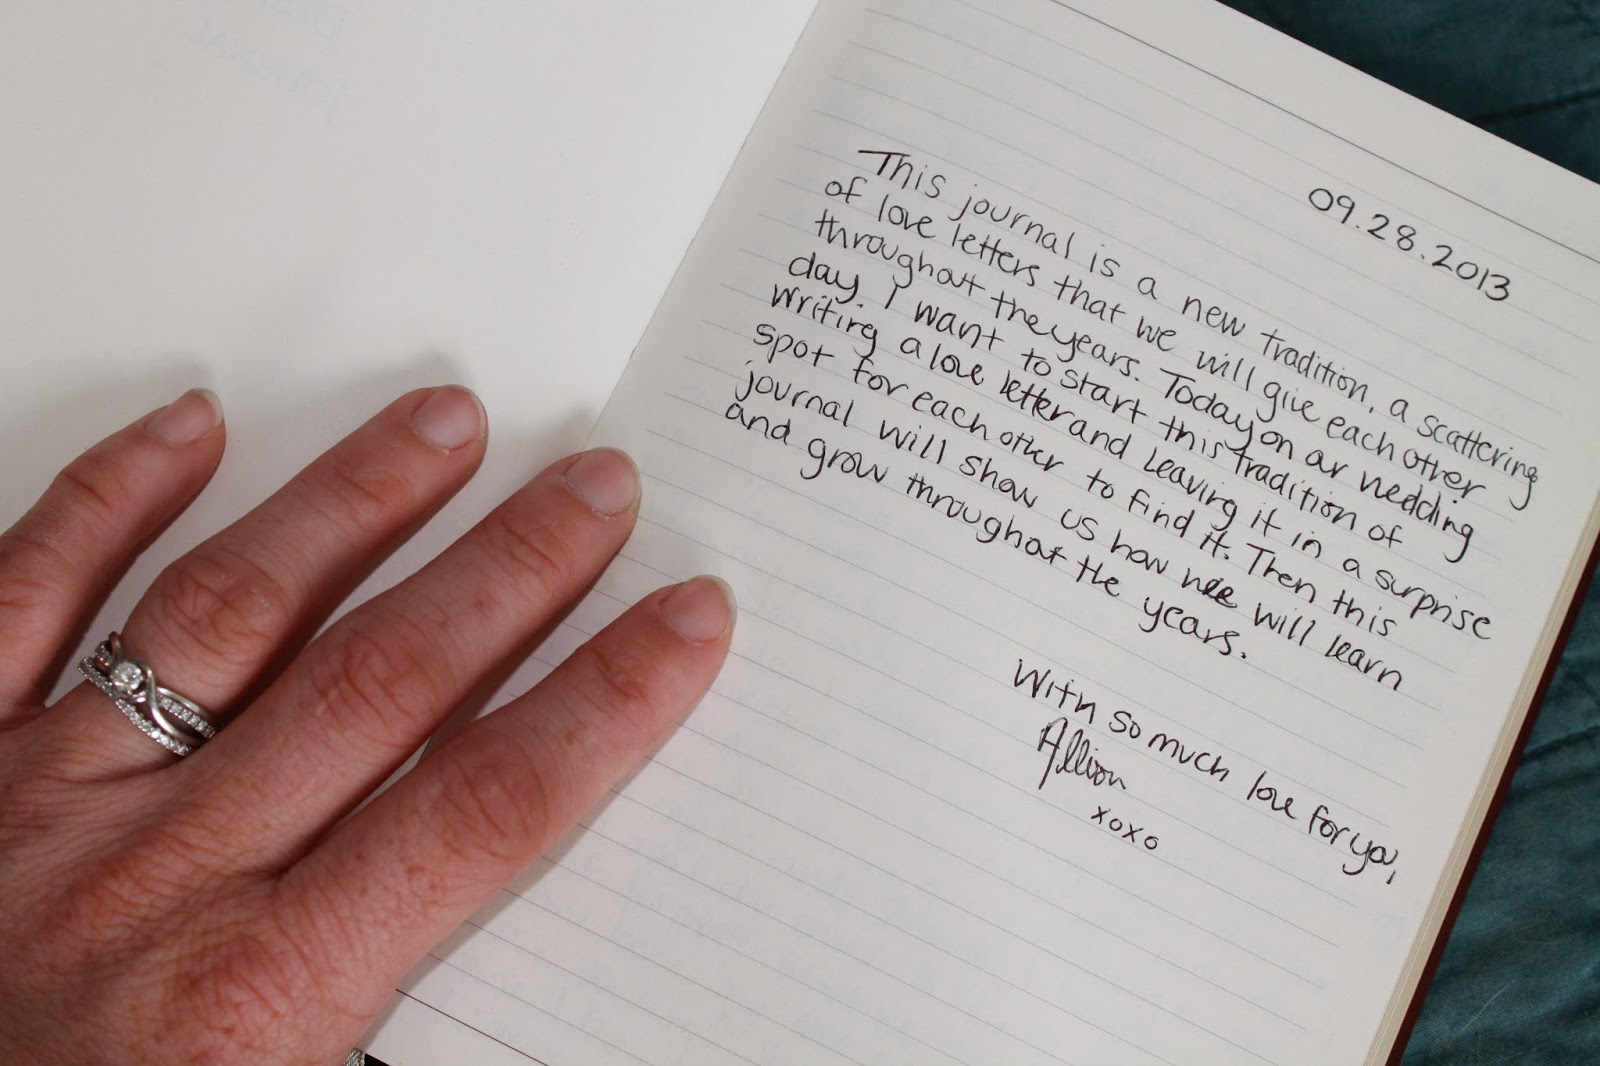 09.28.2013
This journal is a new tradition, a scattering
of love letters that we will give each other
throughout the years. Today on our wedding
day. I want to start this tradition of
writing a love letter and leaving it in a surprise
spot for each other to find it. Then this
journal will show us how we will learn
and grow throughout the years.
With so much love for you,
Allison
xoxo